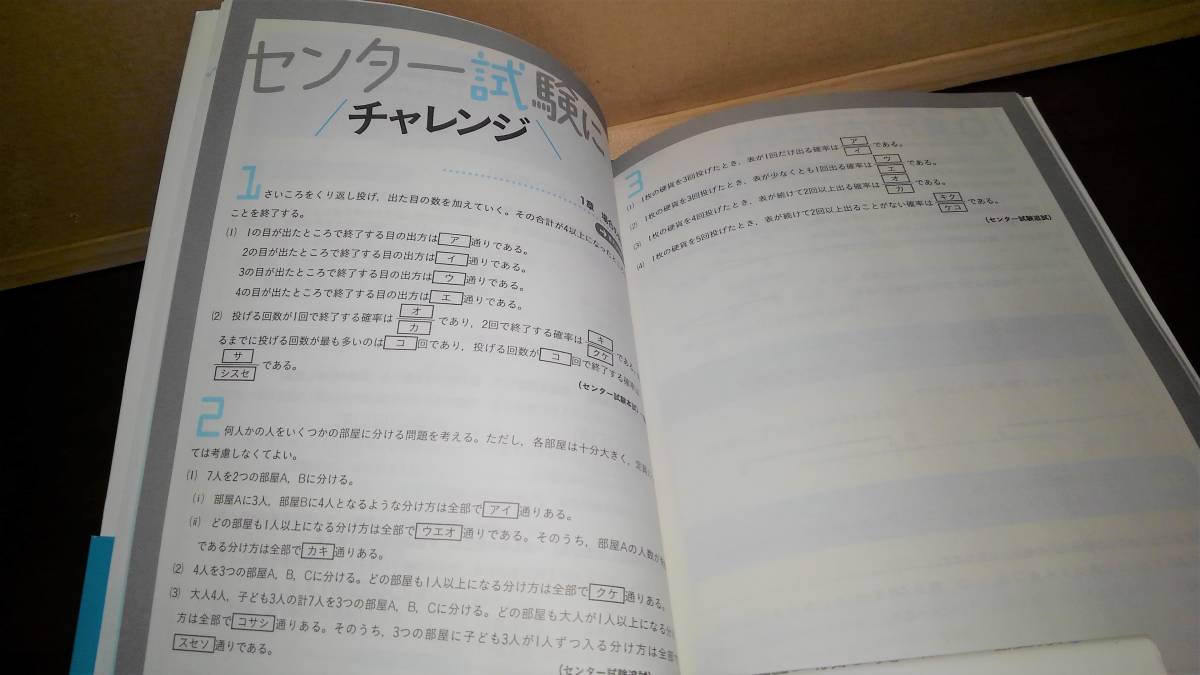 センター試験に
チャレンジ
1章
1
さいころをくり返し投げ，出た目の数を加えていく。その合計が4以上になったところ
ことを終了する。
(1) 1の目が出たところで終了する目の出方は ア 通りである。
2の目が出たところで終了する目の出方は イ 通りである。
3の目が出たところで終了する目の出方は ウ 通りである。
4の目が出たところで終了する目の出方は エ 通りである。
(2) 投げる回数が1回で終了する確率は オ/カ であり，2回で終了する確率は キ/クケ である。
るまでに投げる回数が最も多いのは コ 回であり，投げる回数が コ 回で終了する確率は
サ/シスセ である。
(センター試験本試)
2
何人かの人をいくつかの部屋に分ける問題を考える。ただし，各部屋は十分大きく，定員
ては考慮しなくてよい。
(1) 7人を2つの部屋A，Bに分ける。
(i) 部屋Aに3人，部屋Bに4人となるような分け方は全部で アイ 通りある。
(ii) どの部屋も1人以上になる分け方は全部で ウエオ 通りである。そのうち，部屋Aの人数が
である分け方は全部で カキ 通りある。
(2) 4人を3つの部屋A，B，Cに分ける。どの部屋も1人以上になる分け方は全部で クケ 通りある。
(3) 大人4人，子ども3人の計7人を3つの部屋A，B，Cに分ける。どの部屋も大人が1人以上になる分け
方は全部で コサシ 通りある。そのうち，3つの部屋に子ども3人が1人ずつ入る分け方は全部で
スセソ 通りである。
(センター試験追試)
3
(1) 1枚の硬貨を3回投げたとき，表が1回だけ出る確率は ア/イ である。
(2) 1枚の硬貨を3回投げたとき，表が少なくとも1回出る確率は ウ/エ である。
(3) 1枚の硬貨を4回投げたとき，表が続けて2回以上出る確率は オ/カ である。
(4) 1枚の硬貨を5回投げたとき，表が続けて2回以上出ることがない確率は キク/ケコ である。
(センター試験追試)